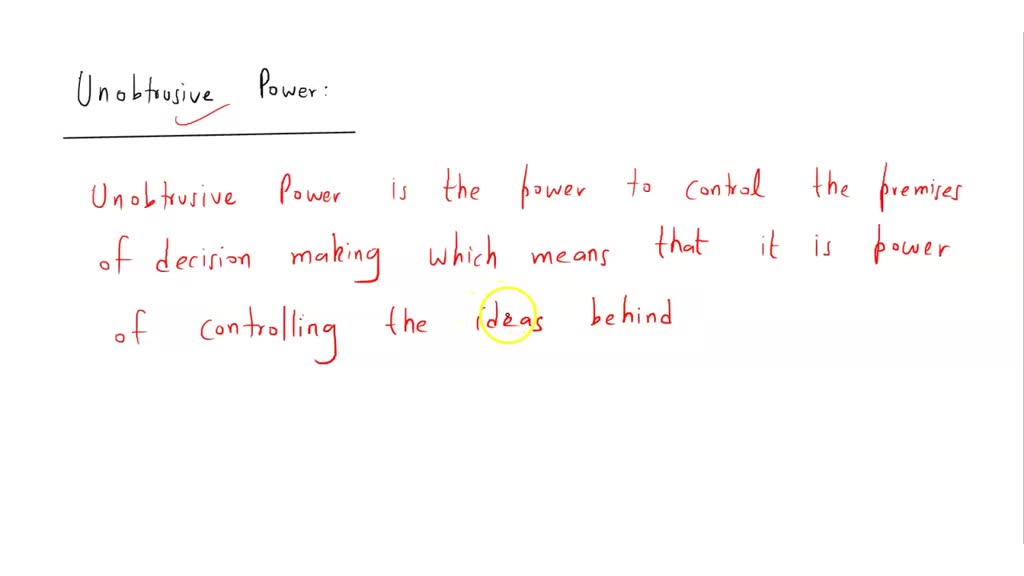 Unobtrusive Power:
Unobtrusive Power is the power to control the premises
of decision making which means that it is power
of controlling the ideas behind